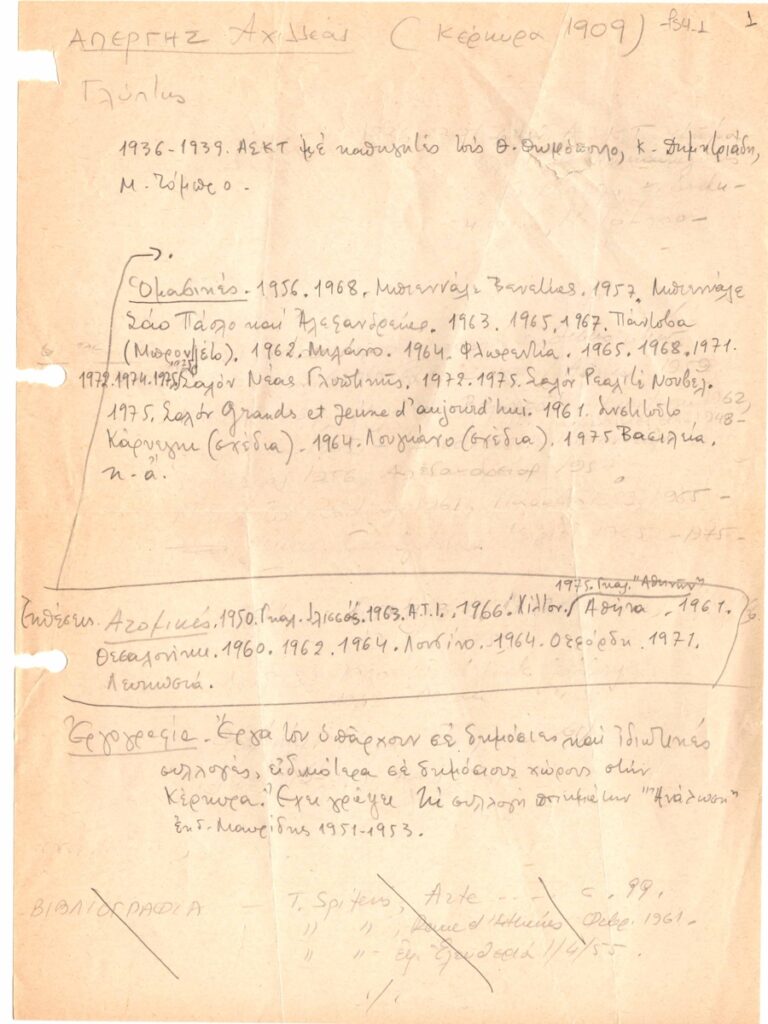 ΑΠΕΡΓΗΣ Αχιλλέας (Κέρκυρα 1909) 1
Γλύπτης
1936-1939. ΑΣΚΤ μέ καθηγητές τούς Θ. Θωμόπουλο, Κ. Δημητριάδη,
Μ. Τόμπρο.
Ὁμαδικές. 1956. 1968. Μπιεννάλε Βενετίας. 1957. Μπιεννάλε
Σάο Πάολο καί Ἀλεξανδρείας. 1963. 1965, 1967. Πάντοβα
(Μπρονζέτο). 1962. Μιλάνο. 1964. Φλωρεντία. 1965. 1968. 1971.
1972. 1974. 1975. Σαλόν Νέας Γλυπτικής. 1972. 1975. Σαλόν Ρεαλιτέ Νουβέλ.
1975. Σαλόν Grands et Jeune d'aujourd'hui. 1961. Ινστιτοῦτο
Κάρνεγκη (σχέδια). 1964. Λουγκάνο (σχέδια). 1975 Βασιλεία.
κ.ἄ.
1975. Γκαλ. "Αθηνῶν"
Ἐκθέσεις. Ατομικές. 1950. Γκαλ. Ιλισσός. 1963. Α.Τ.Ι. 1966. Χίλτον. Αθήνα. 1961.
Θεσαλονίκη. 1960. 1962. 1964. Λονδίνο. 1964. Οξφόρδη. 1971.
Λευκωσία.
Ἐργογραφία. Ἔργα του ὑπάρχουν σέ δημόσιες καί ἰδιωτικές
συλλογές, εἰδικότερα σέ δημόσιους χώρους στήν
Κέρκυρα. Ἔχει γράψει τή συλλογή ποιημάτων "Ἀνάλωση"
ἐκδ. Μαυρίδης 1951-1953.
ΒΙΒΛΙΟΓΡΑΦΙΑ - T. Spiteris, Arte σ. 99.
" " , d'Athènes Φεβρ. 1961.
" " - ἐφ. Ἐλευθερία 1/4/55.
./.